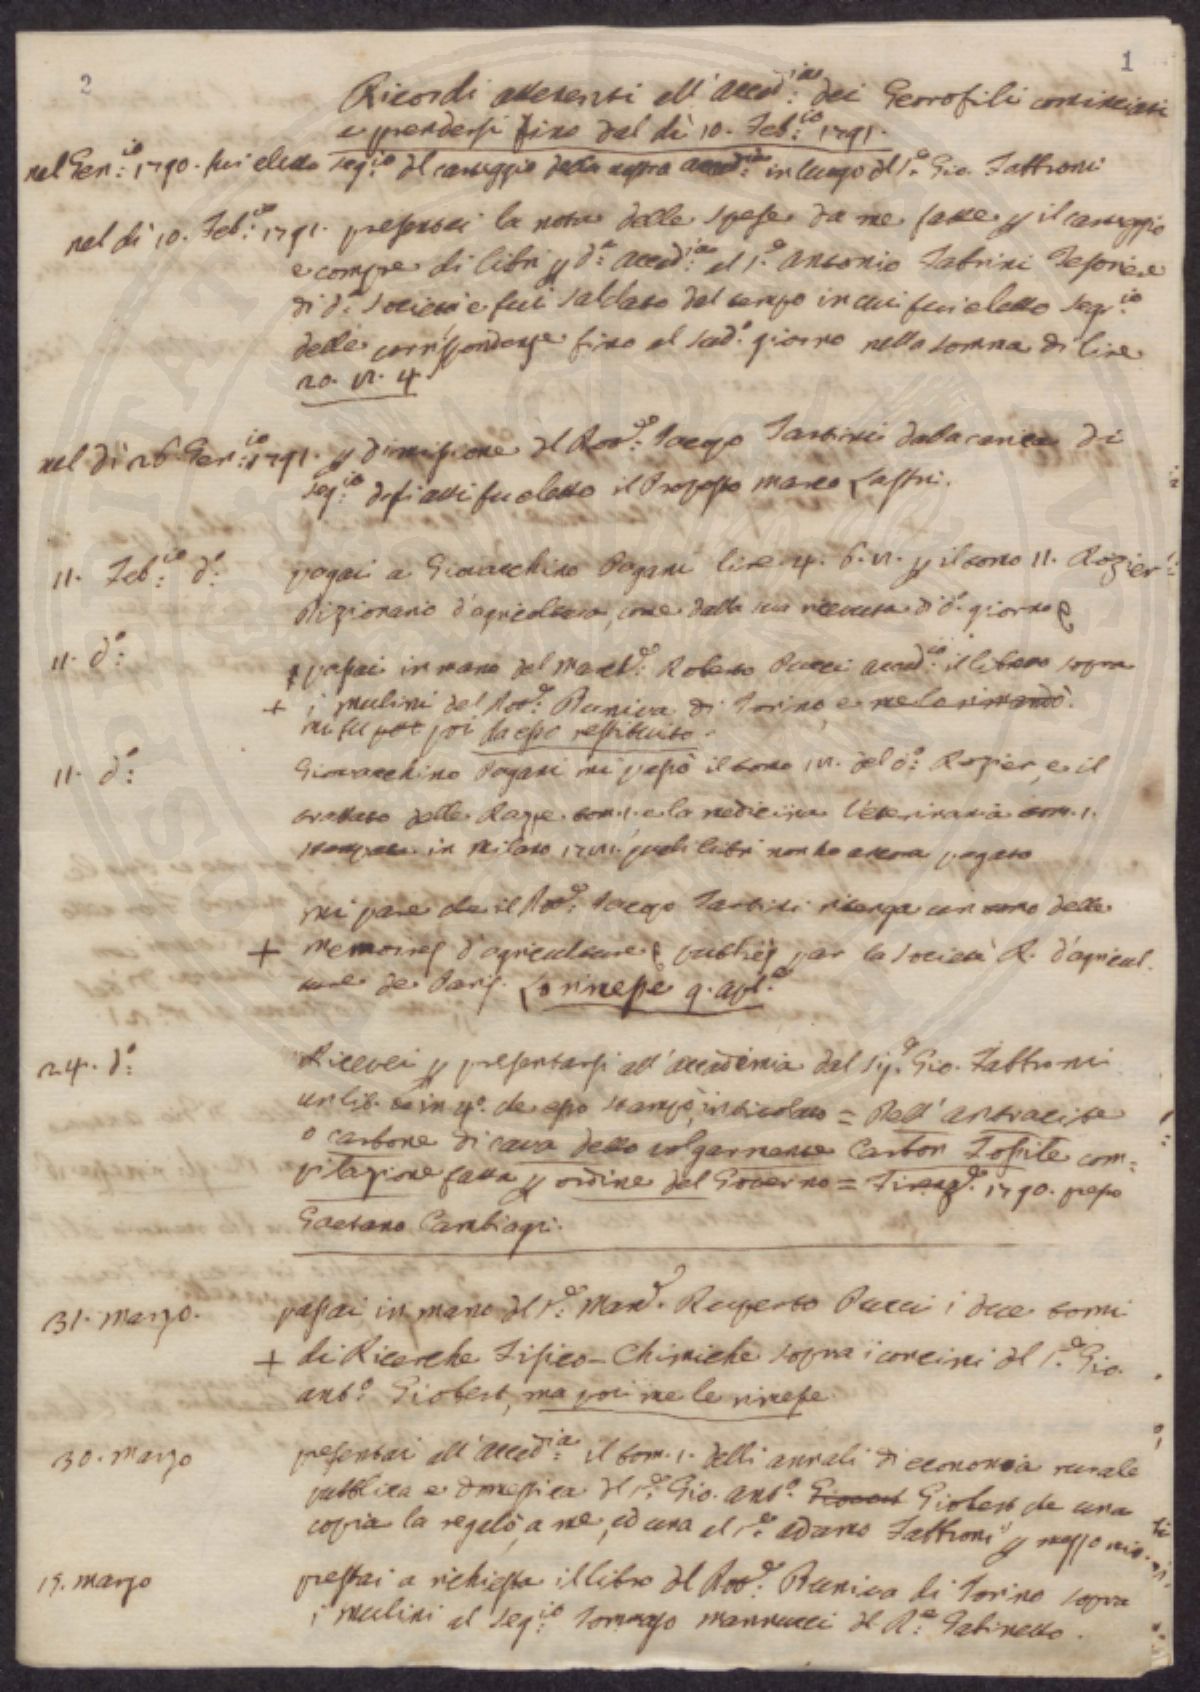 2
1
Ricordi attenenti all'Accad:ia dei Georofili cominciati
a prendersi fino dal dì 10. Feb:io 1791.
nel Gen:io 1790. fui eletto Seg:io del carteggio della sopra Accad:ia in luogo del S.e Gio. Fabbroni
nel dì 10. Feb:io 1791. presentai la nota delle spese da me fatte p il carteggio
e compre di libri p d:a Accad:ia al S.e Antonio Fabrini Tesoriere
di d:a Società e fui saldato dal tempo in cui fui eletto Seg:io
delle corrispondenze fino al sud.o giorno nella somma di lire
20. 12. 4
nel dì 26 Gen:io 1791. p dimissione del Dott:e Jacopo Tartini dalla carica di
Seg:io degli atti fu eletto il Proposto Marco Lastri.
11. Feb:io d:o pagai a Giovacchino Pagani lire 4. 6. 12. p il tomo 11. Rozier
Dizionario d'agricoltura, come dalla sua ricevuta di d.o giorno
11. d:o passai in mano del March:e Roberto Pucci Accad:io il libretto sopra
+ i mulini del Dott:e Buniva di Torino, e me lo rimandò.
mi fu poi da esso restituito.
11. d:o Giovacchino Pagani mi passò il tomo 12. del d:o Rozier, e il
trattato delle Razze tom. 1. e la medicina Veterinaria tom. 1.
stampate in Milano quali libri non ho ancora pagato
mi pare che il Dott:e Jacopo Tartini ritenga un tomo delle
+ Memoires d'agriculture publiés par la Società R. d'agricul.
ture de Paris. Lo rimesse 9. Aple
24. d:o Ricevei p presentarsi all'accademia dal Sig.e Gio. Fabbroni
un lib. in 4.o da esso stampò, intitolato = Dell'antracite
o carbone di cava detto volgarmente Carbon Fossile com=
pilazione fatta p ordine del Governo = Firenze. 1790. presso
Gaetano Cambiagi.
31. Marzo. passai in mano del S:e March. Ruperto Pucci i due tomi
+ di Ricerche Fisico-Chimiche sopra i concimi del S.e Gio.
Ant.o Giobert, ma poi me le rimesse
30. Marzo presentai all'Accad:ia il tom. 1. delli annali di economia rurale
pubblica e domestica del S.e Gio. Ant.o Giobert de una
copia la regalò a me, ed una al S.e Adamo Fabbroni p mezzo mio.
15. Marzo prestai a richiesta il libro del Dott.e Buniva di Torino sopra
i mulini al Seg:io Tommaso Mannucci del R:e Gabinetto.